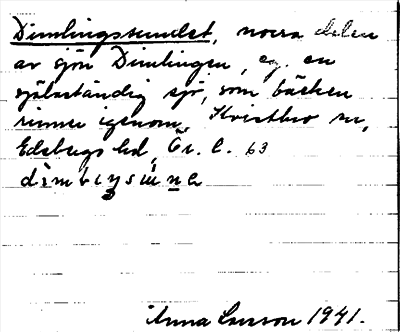 Dimlingssundet, norra delen
av sjön Dimlingen, eg. en
självständig sjö, som bäcken
rinner igenom. Kvistbro sn,
Edsbergs hd, Ör. l. 63
Anna Larsson 1941.